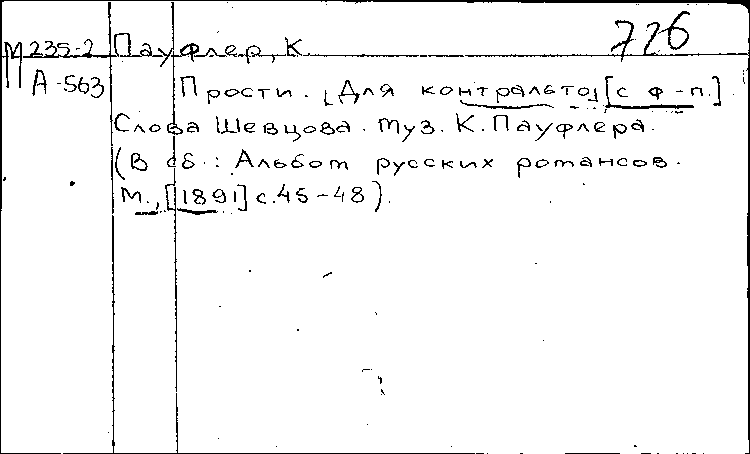 М 235-2 Пауфлер, К. 726
А-563 Прости. [Для контральто] [с ф-п.]
Слова Шевцова. Муз. К. Пауфлера.
(В сб.: Альбом русских романсов.
М., [1891] с. 45-48).